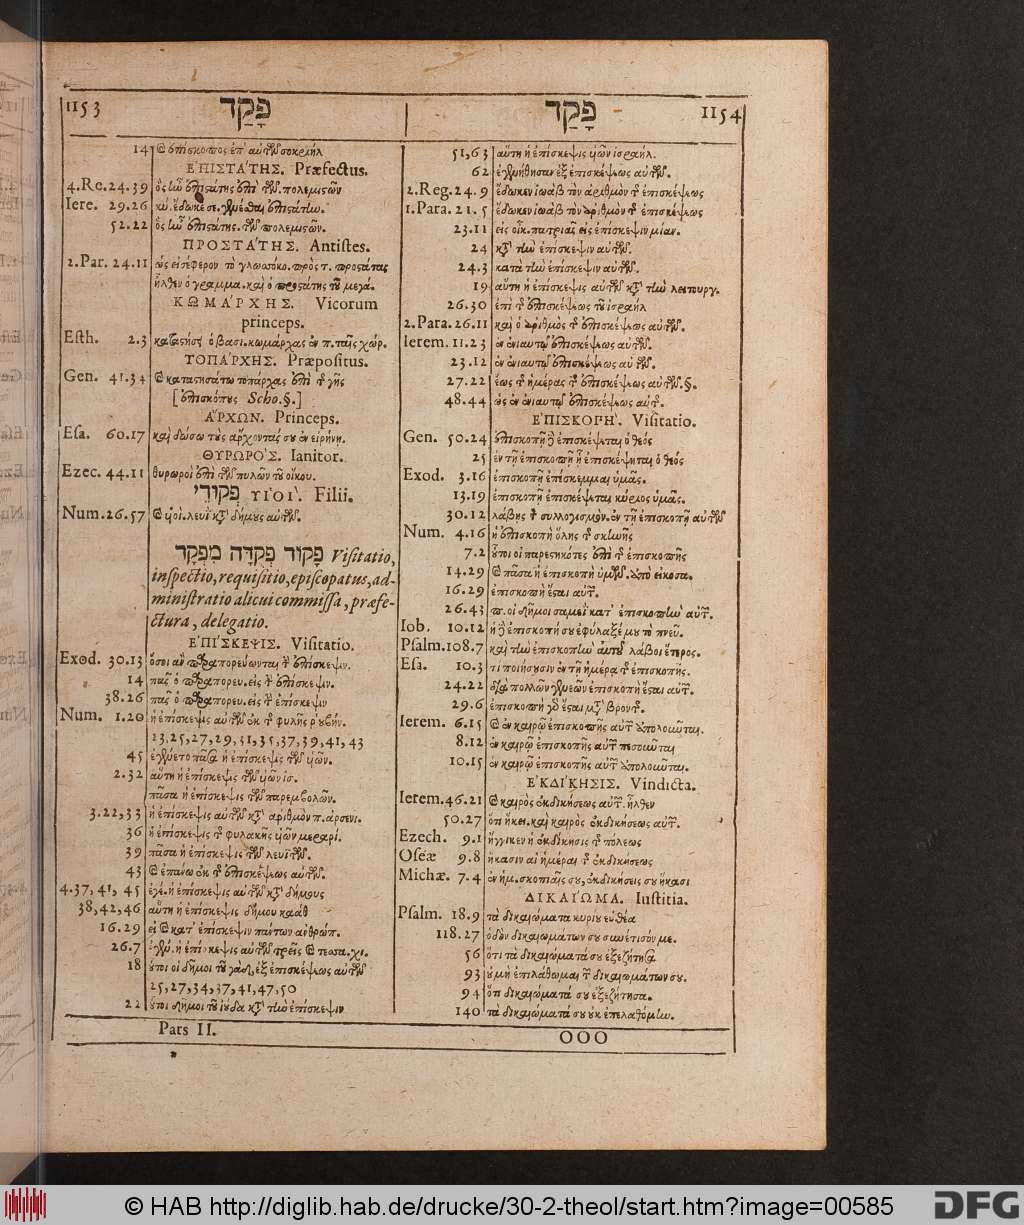 1153 פָּקַד
14 ἐπίσκοπος ἐπ' αὐτῶν
ΕΠΙΣΤΑ'ΤΗΣ. Præfectus.
4.Re.24.39 ὃς ἦν ἐπιστάτης ἐπὶ τῶν πολεμιςῶν
Iere. 29.26 κύ. ἔδωκέ σε. γενέσθαι ἐπιστάτην.
52.22 ὃς ἦν ἐπιστάτης. τῶν πολεμιςῶν.
ΠΡΟΣΤΑ'ΤΗΣ. Antistes.
2.Par. 24.11 ὡς εἰσέφερον τὸ γλωσσόκο. πρὸς τ. προστάτας
ἦλθεν ὁ γραμμα. καὶ ὁ προστάτης τοῦ μεγά.
ΚΩΜΑ'ΡΧΗΣ. Vicorum
princeps.
Esth. 2.3 καταστήσει ὁ βασι. κωμάρχας ἐν π. ταῖς χώρ.
ΤΟΠΑ'ΡΧΗΣ. Præpositus.
Gen. 41.34 καὶ καταστησάτω τοπάρχας ἐπὶ τῆς γῆς
[ἐπισκόπους Scho.§.]
ΑΡΧΩΝ. Princeps.
Esa. 60.17 καὶ δώσω τοὺς ἄρχοντάς σου ἐν εἰρήνῃ.
ΘΥΡΩΡΟ'Σ. Ianitor.
Ezec. 44.11 θυρωροὶ ἐπὶ τῶν πυλῶν τοῦ οἴκου.
פְקוּדֵי ΥΙΟΙ'. Filii.
Num.26.57 καὶ υἱοὶ λευὶ κατὰ δήμους αὐτῶν.
פָּקוּד פְּקֻדָּה מִפְקָד Visitatio,
inspectio, requisitio, episcopatus, ad-
ministratio alicui commissa, præfe-
ctura, delegatio.
ΕΠΙ'ΣΚΕΨΙΣ. Visitatio.
Exod. 30.13 ὅσοι ἂν παραπορεύωνται τὴν ἐπίσκεψιν.
14 πᾶς ὁ παραπορευ. εἰς τὴν ἐπίσκεψιν.
38.26 πᾶς ὁ παραπορευ. εἰς τὴν ἐπίσκεψιν
Num. 1.20 ἡ ἐπίσκεψις αὐτῶν ἐκ τῆς φυλῆς ῥουβήν.
23,25,27,29,31,35,37,39,41,43
45 ἐγένετο πᾶσα ἡ ἐπίσκεψις τῶν υἱῶν.
2.32 αὕτη ἡ ἐπίσκεψις τῶν υἱῶν ἰσ.
πᾶσα ἡ ἐπίσκεψις τῶν παρεμβολῶν.
3.22,33 ἡ ἐπίσκεψις αὐτῶν κατὰ ἀριθμὸν π. ἀρσενι.
36 ἡ ἐπίσκεψις τῆς φυλακῆς υἱῶν μεραρί.
39 πᾶσα ἡ ἐπίσκεψις τῶν λευϊτῶν.
43 ἐπάνω ἐκ τῆς ἐπισκέψεως αὐτῶν.
4.37,41,45 ἡ ἐπίσκεψις αὐτῶν κατὰ δήμους
38,42,46 αὕτη ἡ ἐπίσκεψις δήμου καὰθ
16.29 εἰ καὶ κατ' ἐπίσκεψιν πάντων ἀνθρώπ.
26.7 ἐγέν. ἡ ἐπίσκεψις αὐτῶν τρεῖς καὶ τεσσα. χι.
18 οὗτοι οἱ δῆμοι τοῦ γὰδ, ἐξ ἐπισκέψεως αὐτῶν
25,27,34,37,41,47,50
22 οὗτοι δῆμοι τοῦ ἰούδα κατὰ τὴν ἐπίσκεψιν
Pars II.
פָּקַד 1154
51,63 αὕτη ἡ ἐπίσκεψις υἱῶν ἰσραήλ.
62 ἐγενήθησαν ἐξ ἐπισκέψεως αὐτῶν.
2.Reg.24.9 ἔδωκεν ἰωὰβ τὸν ἀριθμὸν τῆς ἐπισκέψεως
1.Para. 21.5 ἔδωκεν ἰωὰβ τὸν ἀριθμὸν τῆς ἐπισκέψεως
23.11 εἰς οἶκ. πατριᾶς εἰς ἐπίσκεψιν μίαν.
24 κατὰ τὴν ἐπίσκεψιν αὐτῶν.
24.3 κατὰ τὴν ἐπίσκεψιν αὐτῶν.
19 αὕτη ἡ ἐπίσκεψις αὐτῶν κατὰ τὴν λειτουργ.
26.30 ἐπὶ τῆς ἐπισκέψεως τοῦ ἰσραήλ
2.Para.26.11 καὶ ὁ ἀριθμὸς τῆς ἐπισκέψεως αὐτῶν.
Ierem. 11.23 ἐν ἐνιαυτῷ ἐπισκέψεως αὐτῶν.
23.12 ἐν ἐνιαυτῷ ἐπισκέψεως αὐτῶν.
27.22 ἕως τῆς ἡμέρας τῆς ἐπισκέψεως αὐτῶν.§.
48.44 ὡς ἐν ἐνιαυτῷ ἐπισκέψεως αὐτῶν.
ΕΠΙΣΚΟΠΗ'. Visitatio.
Gen. 50.24 ἐπισκοπῇ δὲ ἐπισκέψεται ὁ θεός
25 ἐν τῇ ἐπισκοπῇ ᾗ ἐπισκέψηται ὁ θεός
Exod. 3.16 ἐπισκοπῇ ἐπέσκεμμαι ὑμᾶς.
13.19 ἐπισκοπῇ ἐπισκέψεται κύριος ὑμᾶς.
30.12 λάβῃς τὸν συλλογισμὸν. ἐν τῇ ἐπισκοπῇ αὐτῶν
Num. 4.16 ἡ ἐπισκοπὴ ὅλης τῆς σκηνῆς
7.2 οὗτοι οἱ παρεστηκότες ἐπὶ τῆς ἐπισκοπῆς
14.29 καὶ πᾶσα ἡ ἐπισκοπὴ ὑμῶν. ἀπὸ εἰκοσα.
16.29 ἐπισκοπὴ ἔσται αὐτῶν.
26.43 π. οἱ δῆμοι σαμεῒ κατ' ἐπισκοπὴν αὐτῶν.
Iob. 10.12 ἡ δὲ ἐπισκοπή σου ἐφύλαξέ μου τὸ πνεῦ.
Psalm.108.7 καὶ τὴν ἐπισκοπὴν αὐτοῦ λάβοι ἕτερος.
Esa. 10.3 τί ποιήσουσιν ἐν τῇ ἡμέρᾳ τῆς ἐπισκοπῆς.
24.22 διὰ πολλῶν γενεῶν ἐπισκοπὴ ἔσται αὐτῶν.
29.6 ἐπισκοπὴ γὰρ ἔσται μετὰ βροντῆς.
Ierem. 6.15 καὶ ἐν καιρῷ ἐπισκοπῆς αὐτῶν ἀπολοῦνται.
8.12 ἐν καιρῷ ἐπισκοπῆς αὐτῶν πεσοῦνται
10.15 ἐν καιρῷ ἐπισκοπῆς αὐτῶν ἀπολοῦνται.
ΕΚΔΙ'ΚΗΣΙΣ. Vindicta.
Ierem.46.21 καὶ καιρὸς ἐκδικήσεως αὐτῶν. ἦλθεν
50.27 ὅτι ἥκει. καὶ καιρὸς ἐκδικήσεως αὐτῶν.
Ezech. 9.1 ἤγγικεν ἡ ἐκδίκησις τῆς πόλεως
Oseæ 9.8 ἥκασιν αἱ ἡμέραι τῆς ἐκδικήσεως
Michæ. 7.4 ἐν ἡμ. σκοπιᾶς σου, ἐκδικήσεις σου ἥκασι
ΔΙΚΑΙ'ΩΜΑ. Iustitia.
Psalm. 18.9 τὰ δικαιώματα κυρίου εὐθέα
118.27 ὁδὸν δικαιωμάτων σου συνέτισόν με.
56 ὅτι τὰ δικαιώματά σου ἐξεζήτησα
93 οὐ μὴ ἐπιλάθωμαι τῶν δικαιωμάτων σου.
94 ὅτι δικαιώματά σου ἐξεζήτησα.
140 τὰ δικαιώματά σου οὐκ ἐπελαθόμην.
OOO
© HAB http://diglib.hab.de/drucke/30-2-theol/start.htm?image=00585
DFG